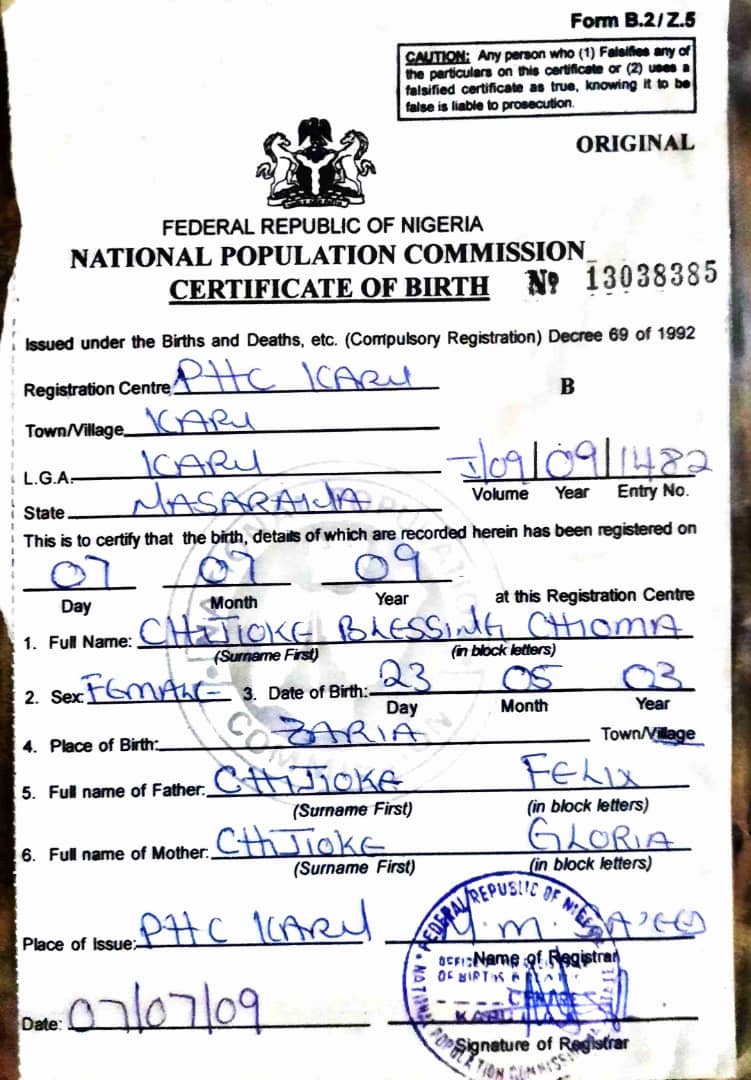 Form B.2/Z.5
CAUTION: Any person who (1) Falsifies any of
the particulars on this certificate or (2) uses a
falsified certificate as true, knowing it to be
false is liable to prosecution.
ORIGINAL
FEDERAL REPUBLIC OF NIGERIA
NATIONAL POPULATION COMMISSION
CERTIFICATE OF BIRTH Nº 13038385
Issued under the Births and Deaths, etc. (Compulsory Registration) Decree 69 of 1992
Registration Centre PHC KARU B
Town/Village KARU
L.G.A. KARU I/09/09/1482
Volume Year Entry No.
State NASARAWA
This is to certify that the birth, details of which are recorded herein has been registered on
07 07 09
Day Month Year at this Registration Centre
1. Full Name: CHIJIOKE BLESSING CHIOMA
(Surname First) (in block letters)
2. Sex: FEMALE 3. Date of Birth: 23 05 03
Day Month Year
4. Place of Birth: ZARIA Town/Village
5. Full name of Father: CHIJIOKE FELIX
(Surname First) (in block letters)
6. Full name of Mother: CHIJIOKE GLORIA
(Surname First) (in block letters)
Place of Issue: PHC KARU Y. M. SA'EED
Name of Registrar
Date: 07/07/09
Signature of Registrar
FEDERAL REPUBLIC OF NIGERIA
KARU
NATIONAL POPULATION COMMISSION